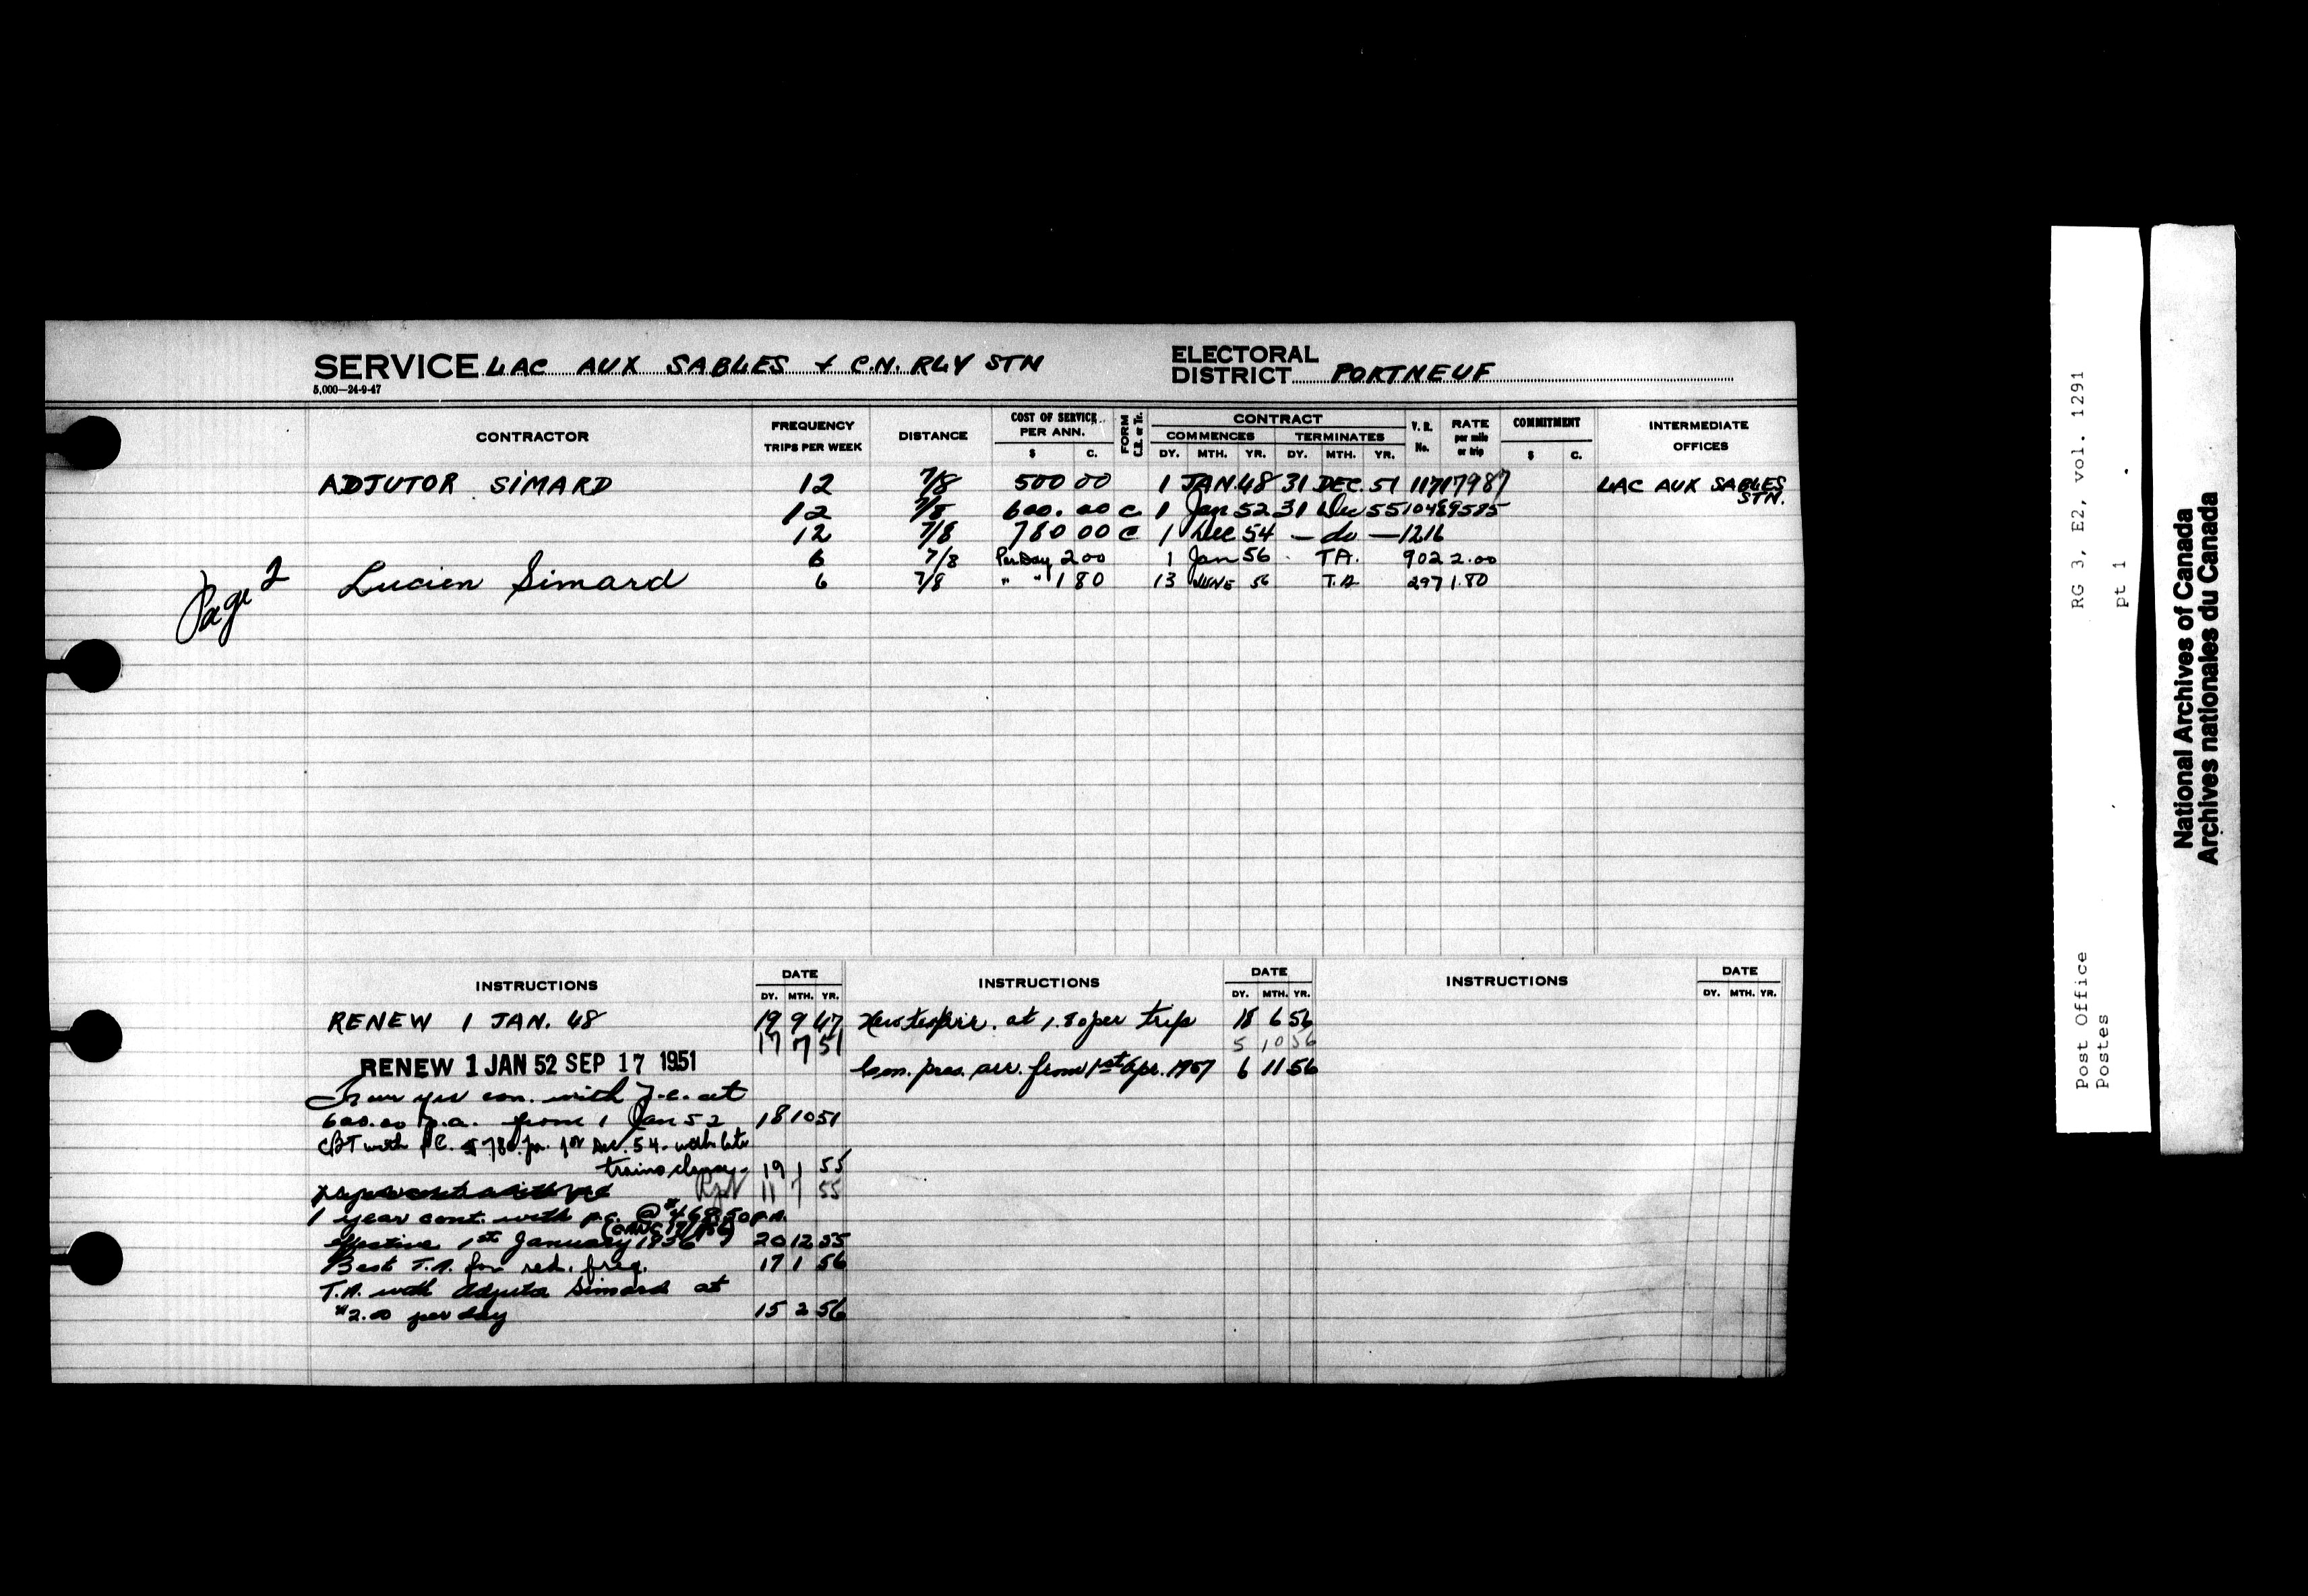 SERVICE LAC AUX SABLES & C.N. RLY STN
5,000—24-9-47
ELECTORAL DISTRICT PORTNEUF
CONTRACTOR FREQUENCY TRIPS PER WEEK DISTANCE COST OF SERVICE PER ANN. $ C. FORM CONTRACT COMMENCES DY. MTH. YR. TERMINATES DY. MTH. YR. V. R. No. RATE per mile or trip COMMITMENT $ C. INTERMEDIATE OFFICES
ADJUTOR SIMARD 12 7/8 500 00 1 JAN. 48 31 DEC. 51 LAC AUX SABLES STN.
12 7/8 600.00 C 1 Jan 52 31 Dec 55
12 7/8 780 00 C 1 Dec 54 — do — 1216
6 7/8 Per Day 2 00 1 Jan 56 T.A. 902 2.00
Page 2
Lucien Simard 6 7/8 " " 1 80 13 JUNE 56 T.A. 297 1.80
INSTRUCTIONS DATE DY. MTH. YR. INSTRUCTIONS DATE DY. MTH. YR. INSTRUCTIONS DATE DY. MTH. YR.
RENEW 1 JAN. 48 19 9 47
17 7 51
RENEW 1 JAN 52 SEP 17 1951
yr con. with P.C. at
600.00 p.a. from 1 Jan 52 18 10 51
with P.C. $780. pa. 1st Dec. 54. with late
trains 19 1 55
11 7 55
1 year cont. with p.c. @ $468.50 p.a.
effective 1st January 1956 20 12 55
Best T.A. for red. freq. 17 1 56
T.A. with Adjutor Simard at
$2.00 per day 15 2 56
at 1.80 per trip 18 6 56
5 10 56
Con. pres. arr. from 1st Apr. 1957 6 11 56
Post Office
Postes
RG 3, E2, vol. 1291
pt 1
National Archives of Canada
Archives nationales du Canada